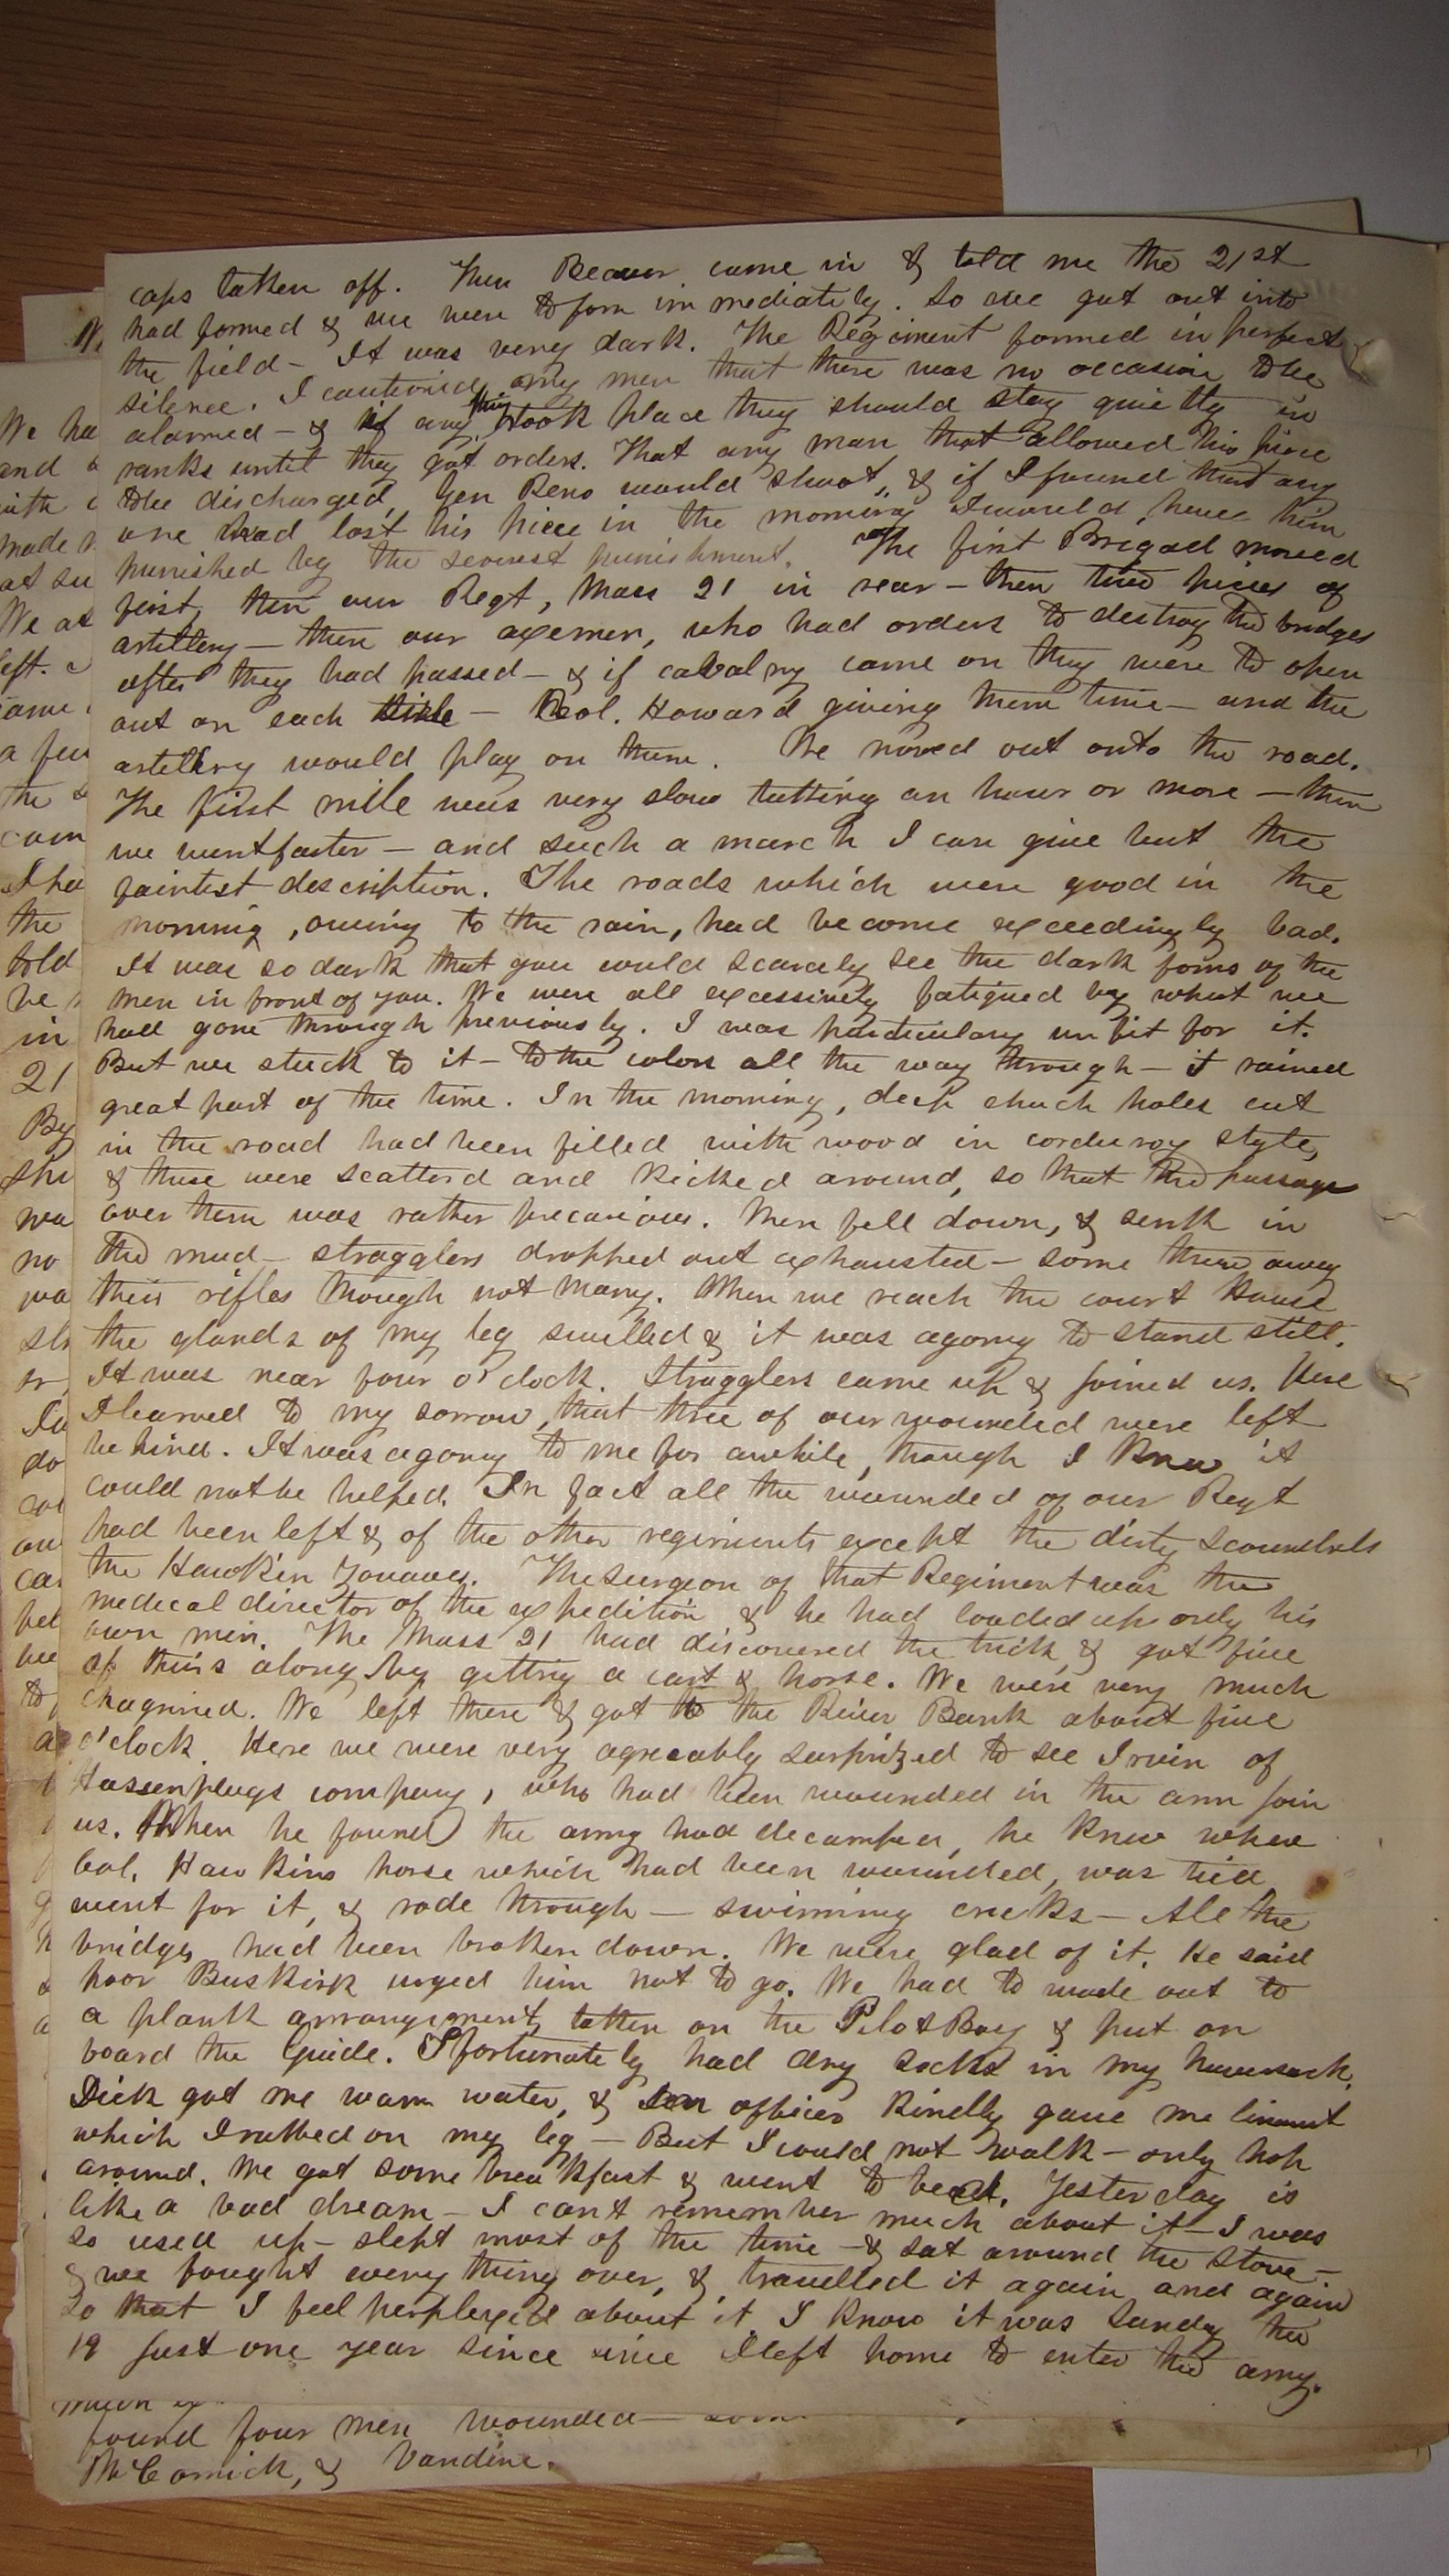 caps taken off. Then Beaver came in & told me the 21st
had formed & we were to form immediately. So we got out into
the field - It was very dark. The Regiment formed in perfect
silence. I cautioned my men that there was no occasion to be
alarmed - & if any thing took place they should stay quietly in
ranks until they got orders. That any man that allowed his piece
to be discharged, Gen Reno would shoot, & if I found that any
one had lost his piece in the morning I would have him
punished by the severest punishment. The first Brigad moved
first, then our Regt, Mass 21 in rear - then two pieces of
artillery - then our axemen, who had orders to destroy the bridges
after they had passed - & if cavalry came on they were to open
out on each side - Col. Howard giving them time - and the
artillery would play on them. We moved out onto the road.
The first mile was very slow taking an hour or more - then
we went faster - and such a march I can give but the
faintest description. The roads which were good in the
morning, owing to the rain, had become exceedingly bad.
It was so dark that you could scarcely see the dark forms of the
men in front of you. We were all excessively fatigued by what we
had gone through previously. I was particulary unfit for it.
But we stuck to it - to the colors all the way through - it rained
great part of the time. In the morning, deep chuck holes cut
in the road had been filled with wood in corduroy style,
& these were scatterd and kicked around, so that the passage
over them was rather precarious. Men fell down, & sunk in
the mud - stragglers dropped out exhausted - some threw away
their rifles though not many. When we reach the court House
the glands of my leg swelled & it was agony to stand still.
It was near four o'clock. Stragglers came up & joined us. Here
I learned to my sorrow, that three of our wounded were left
behind. It was agony to me for awhile, though I knew it
could not be helped. In fact all the wounded of our Regt
had been left & of the other regiments except the dirty scoundrels
the Hawkin Zouaves. The surgeon of that Regiment was the
medical director of the expedition & he had loaded up only his
own men. The Mass 21 had discovered the trick, & got five
of theirs along by getting a cart & horse. We were very much
chagrined. We left there & got to the River Bank about five
o'clock. Here we were very agreeably surprized to see Irvin of
Hassenplugs company, who had been wounded in the arm join
us. When he found the army had decamped, he knew where
Col. Hawkins horse which had been wounded, was tied
went for it, & rode through - swimming creeks - All the
bridges had been broken down. We were glad of it. He said
poor Buskirk urged him not to go. We had to wade out to
a plank arrangement, taken on the Pilot Boy & put on
board the Guide. I fortunately had dry socks in my haversack.
Dick got me warm water, & an officer kindly gave me liniment
which I rubbed on my leg - But I could not walk - only hop
around. We got some breakfast & went to bed. Yesterday is
like a bad dream - I cant remember much about it - I was
so used up - slept most of the time - & sat around the stove -
& we fought every thing over, & travelled it again and again
so that I feel perplexed about it I know it was Sunday the
19 just one year since since I left home to enter the army.
found four men wounded
McCormick, & Vandine.